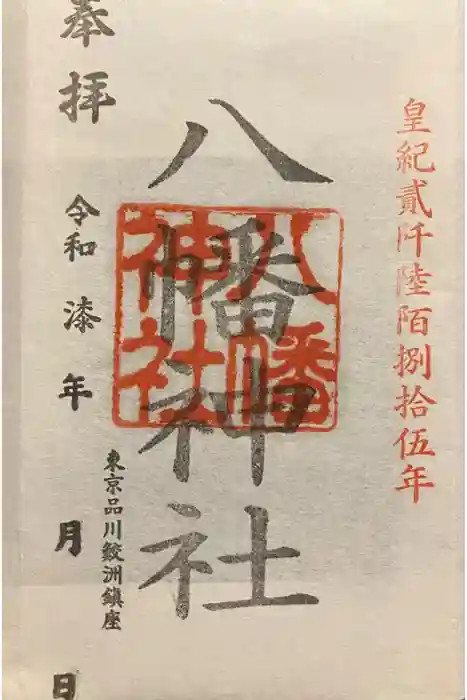 皇紀貳阡陸陌捌拾伍年
八幡神社
八幡
神社
東京品川鮫洲鎮座
奉拝
令和漆年 月 日